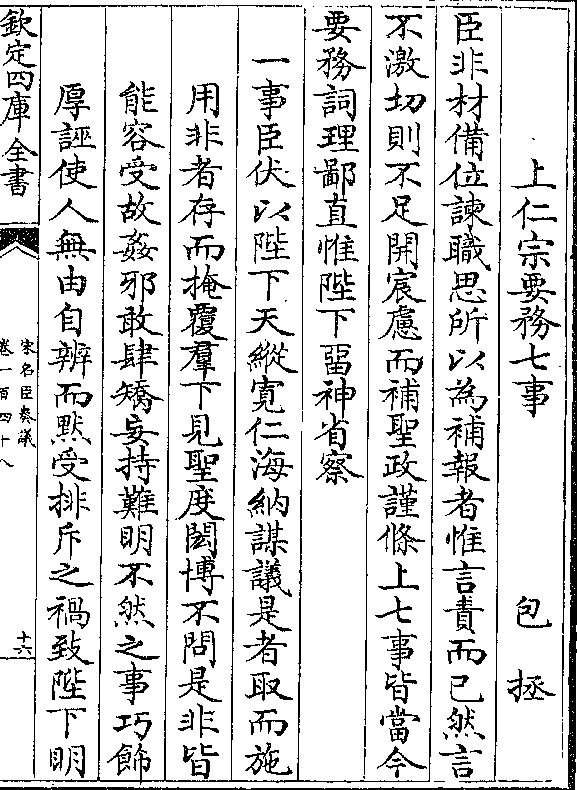 上仁宗要務七事 包拯
臣非材備位諫職思所以為補報者惟言責而已然言
不激切則不足開宸慮而補聖政謹條上七事皆當今
要務詞理鄙直惟陛下畱神省察
一事臣伏以陛下天縱寛仁海納謀議是者取而施
用非者存而掩覆羣下見聖度閎博不問是非皆
能容受故姦邪敢肆矯妄持難明不然之事巧飾
厚誣使人無由自辨而黙受排斥之禍致陛下明
欽定四庫全書
宋名臣奏議
卷一百四十八
十六